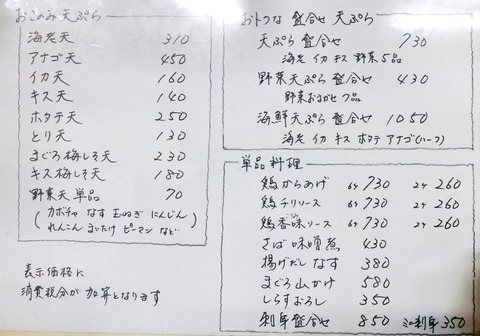 おこのみ天ぷら
海老天 310
アナゴ天 450
イカ天 160
キス天 140
ホタテ天 250
とり天 130
まぐろ梅しそ天 230
キス梅しそ天 180
野菜天 単品 70
(カボチャ なす 玉ねぎ にんじん
れんこん まいたけ ピーマン など)
表示価格に
消費税分が加算となります
おトクな 盛合せ 天ぷら
天ぷら 盛合せ 730
海老 イカ キス 野菜5品
野菜天ぷら 盛合せ 430
野菜おまかせ7品
海鮮天ぷら 盛合せ 1050
海老 イカ キス ホタテ アナゴ(ハーフ)
単品料理
鶏からあげ 6ケ 730 2ケ 260
鶏チリソース 6ケ 730 2ケ 260
鶏香味ソース 6ケ 730 2ケ 260
さば味噌煮 430
揚げだしなす 380
まぐろ山かけ 580
しらすおろし 350
刺身盛合せ 850 ミニ刺身 350